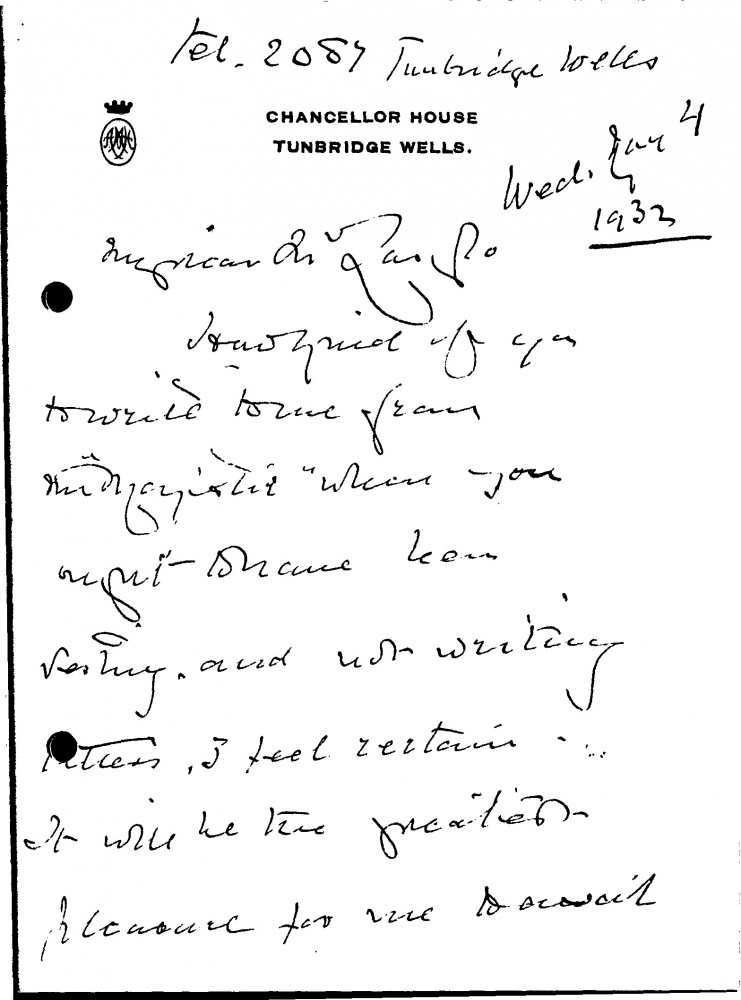 Tel. 2087 Tunbridge Wells
CHANCELLOR HOUSE
TUNBRIDGE WELLS.
Wed. Jan 4
1933
My dear Mr
How kind of you
to write to me from
the "Majestic" when you
ought to have been
resting. and not writing
letters, I feel certain -
It will be the greatest
pleasure for me to await